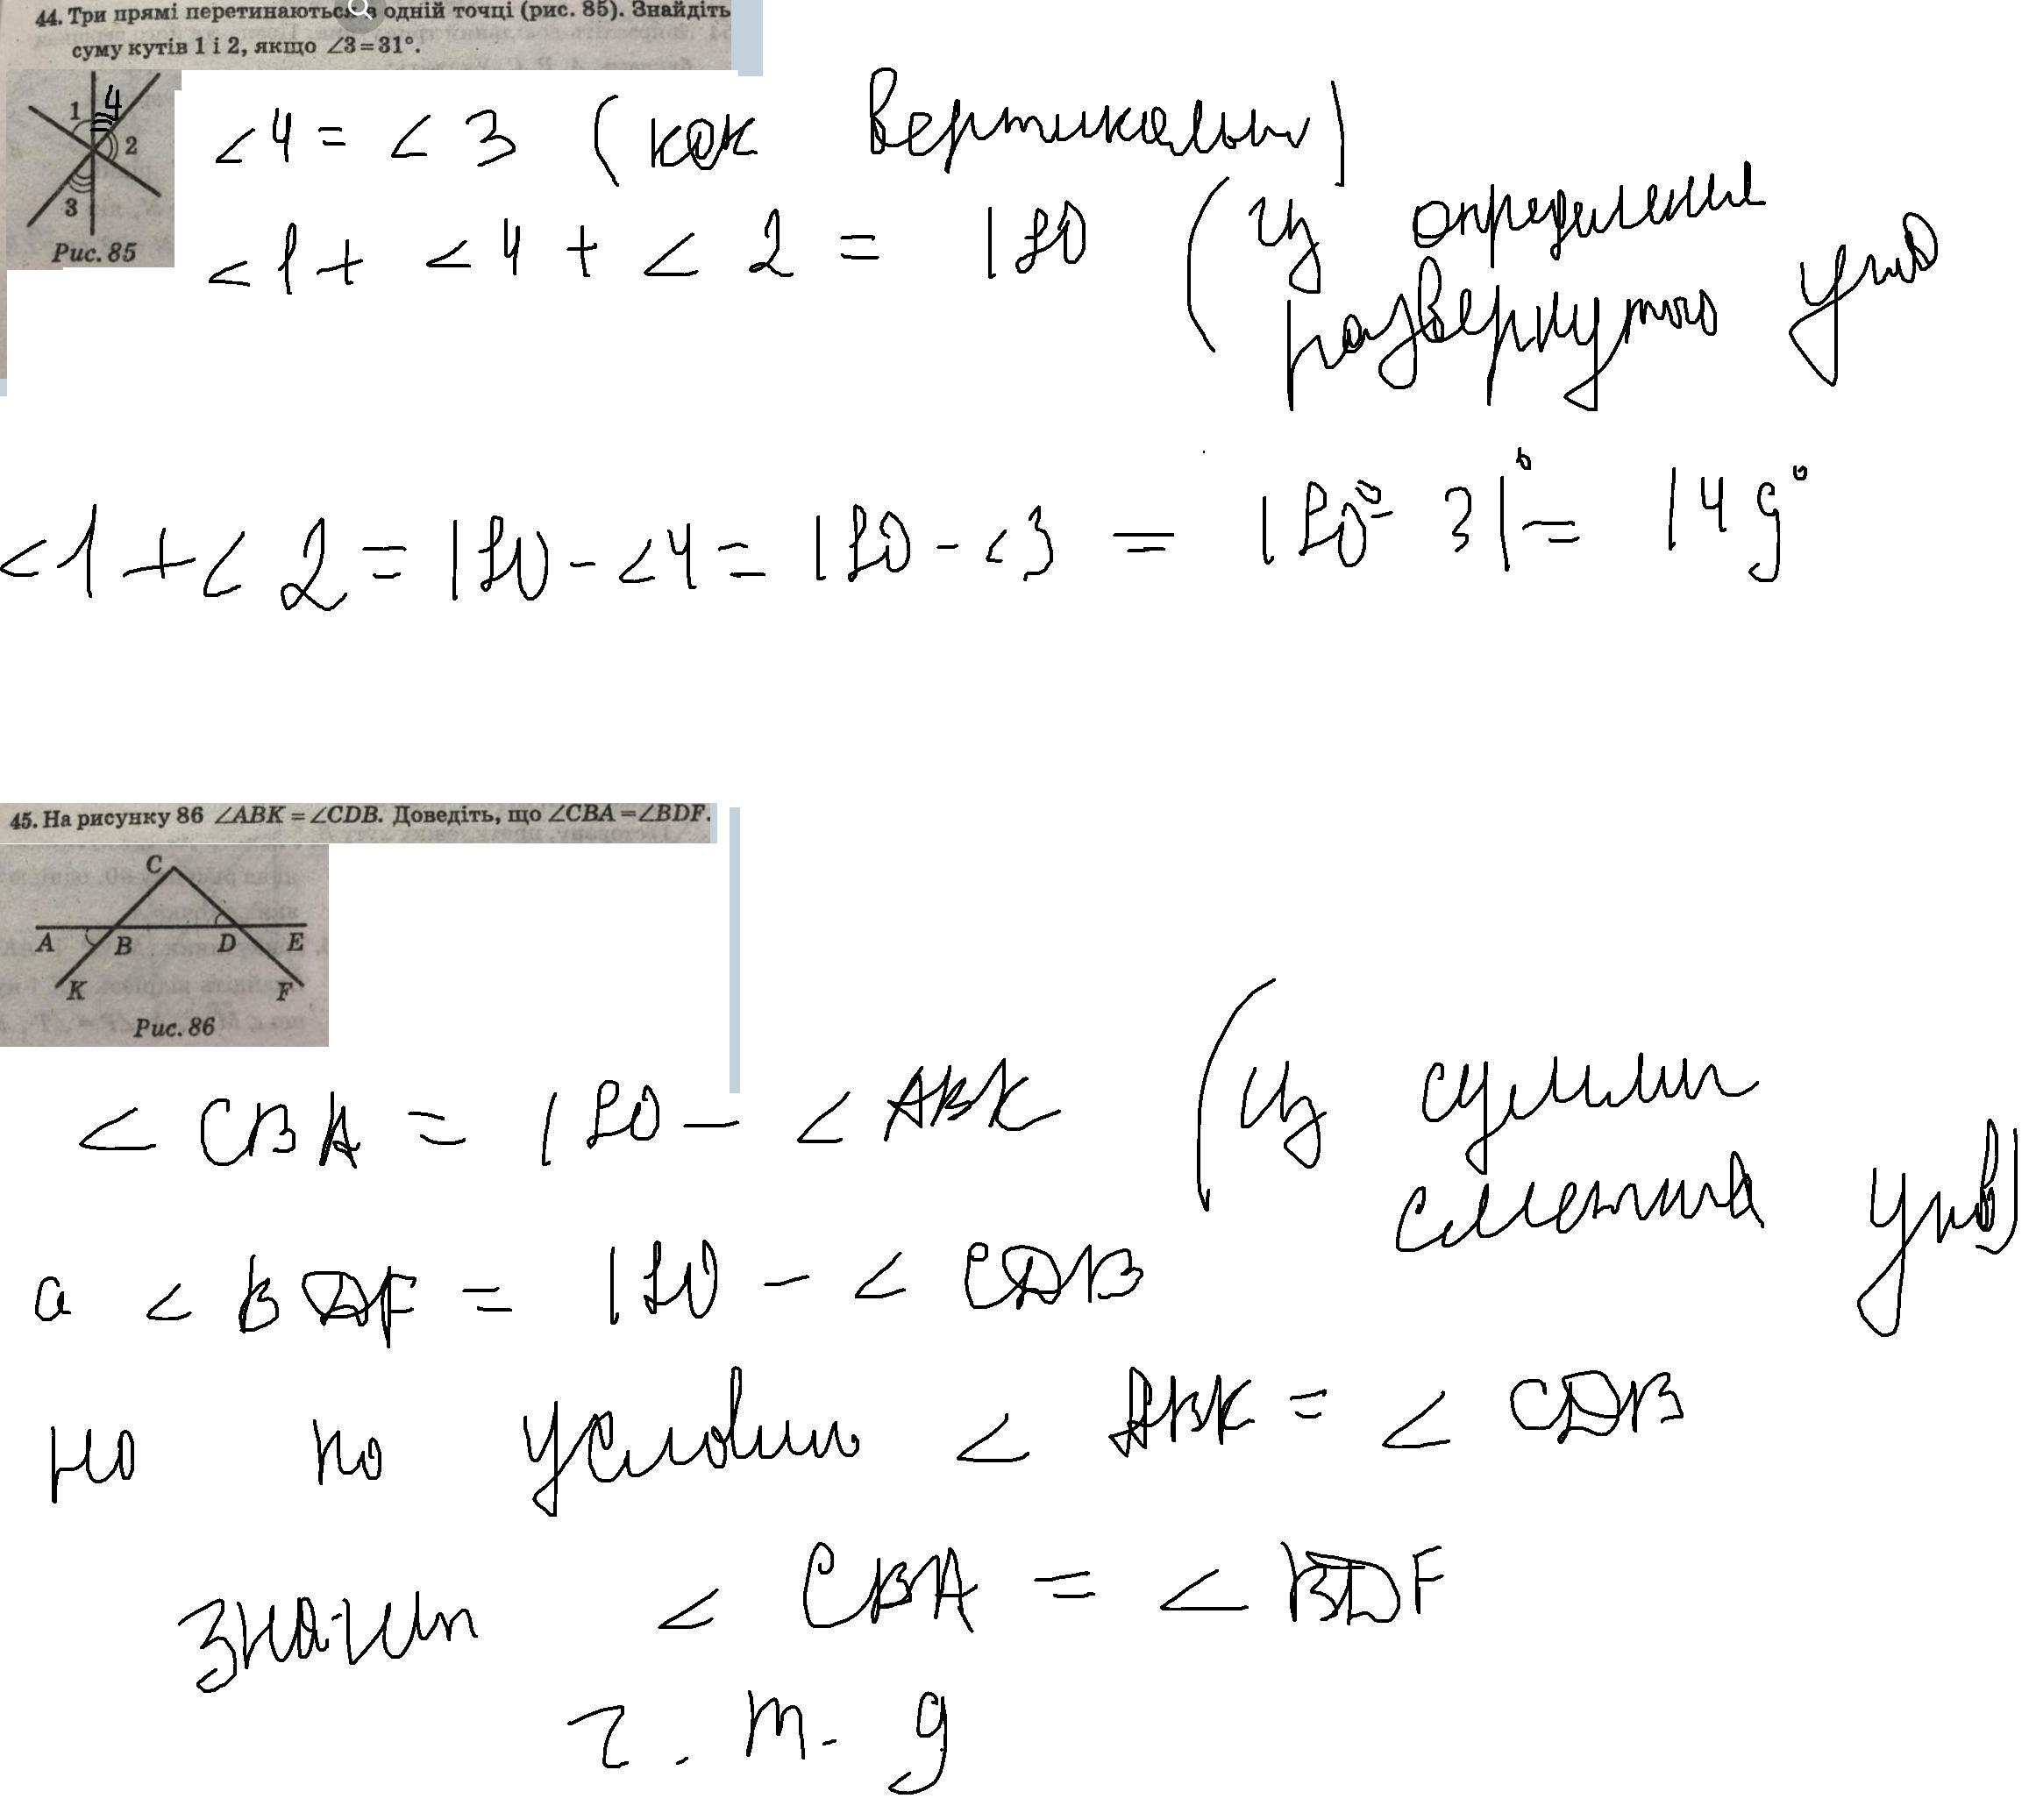 44. Три прямі перетинаються в одній точці (рис. 85). Знайдіть
суму кутів 1 і 2, якщо ∠3=31°.
1 4
2
3
Рис. 85
<4 = <3 (как вертикальн)
<1 + <4 + <2 = 180 (из определение
развернутого угло
<1 + < 2 = 180 - <4 = 180 - <3 = 180° - 31° = 149°
45. На рисунку 86 ∠ABK = ∠CDB. Доведіть, що ∠CBA = ∠BDF.
C
A B D E
K F
Рис. 86
< CBA = 180 - < ABK (из суммы
смежных углов)
а < BDF = 180 - < CDB
но по условию < ABK = < CDB
значит < CBA = < BDF
ч. т. д